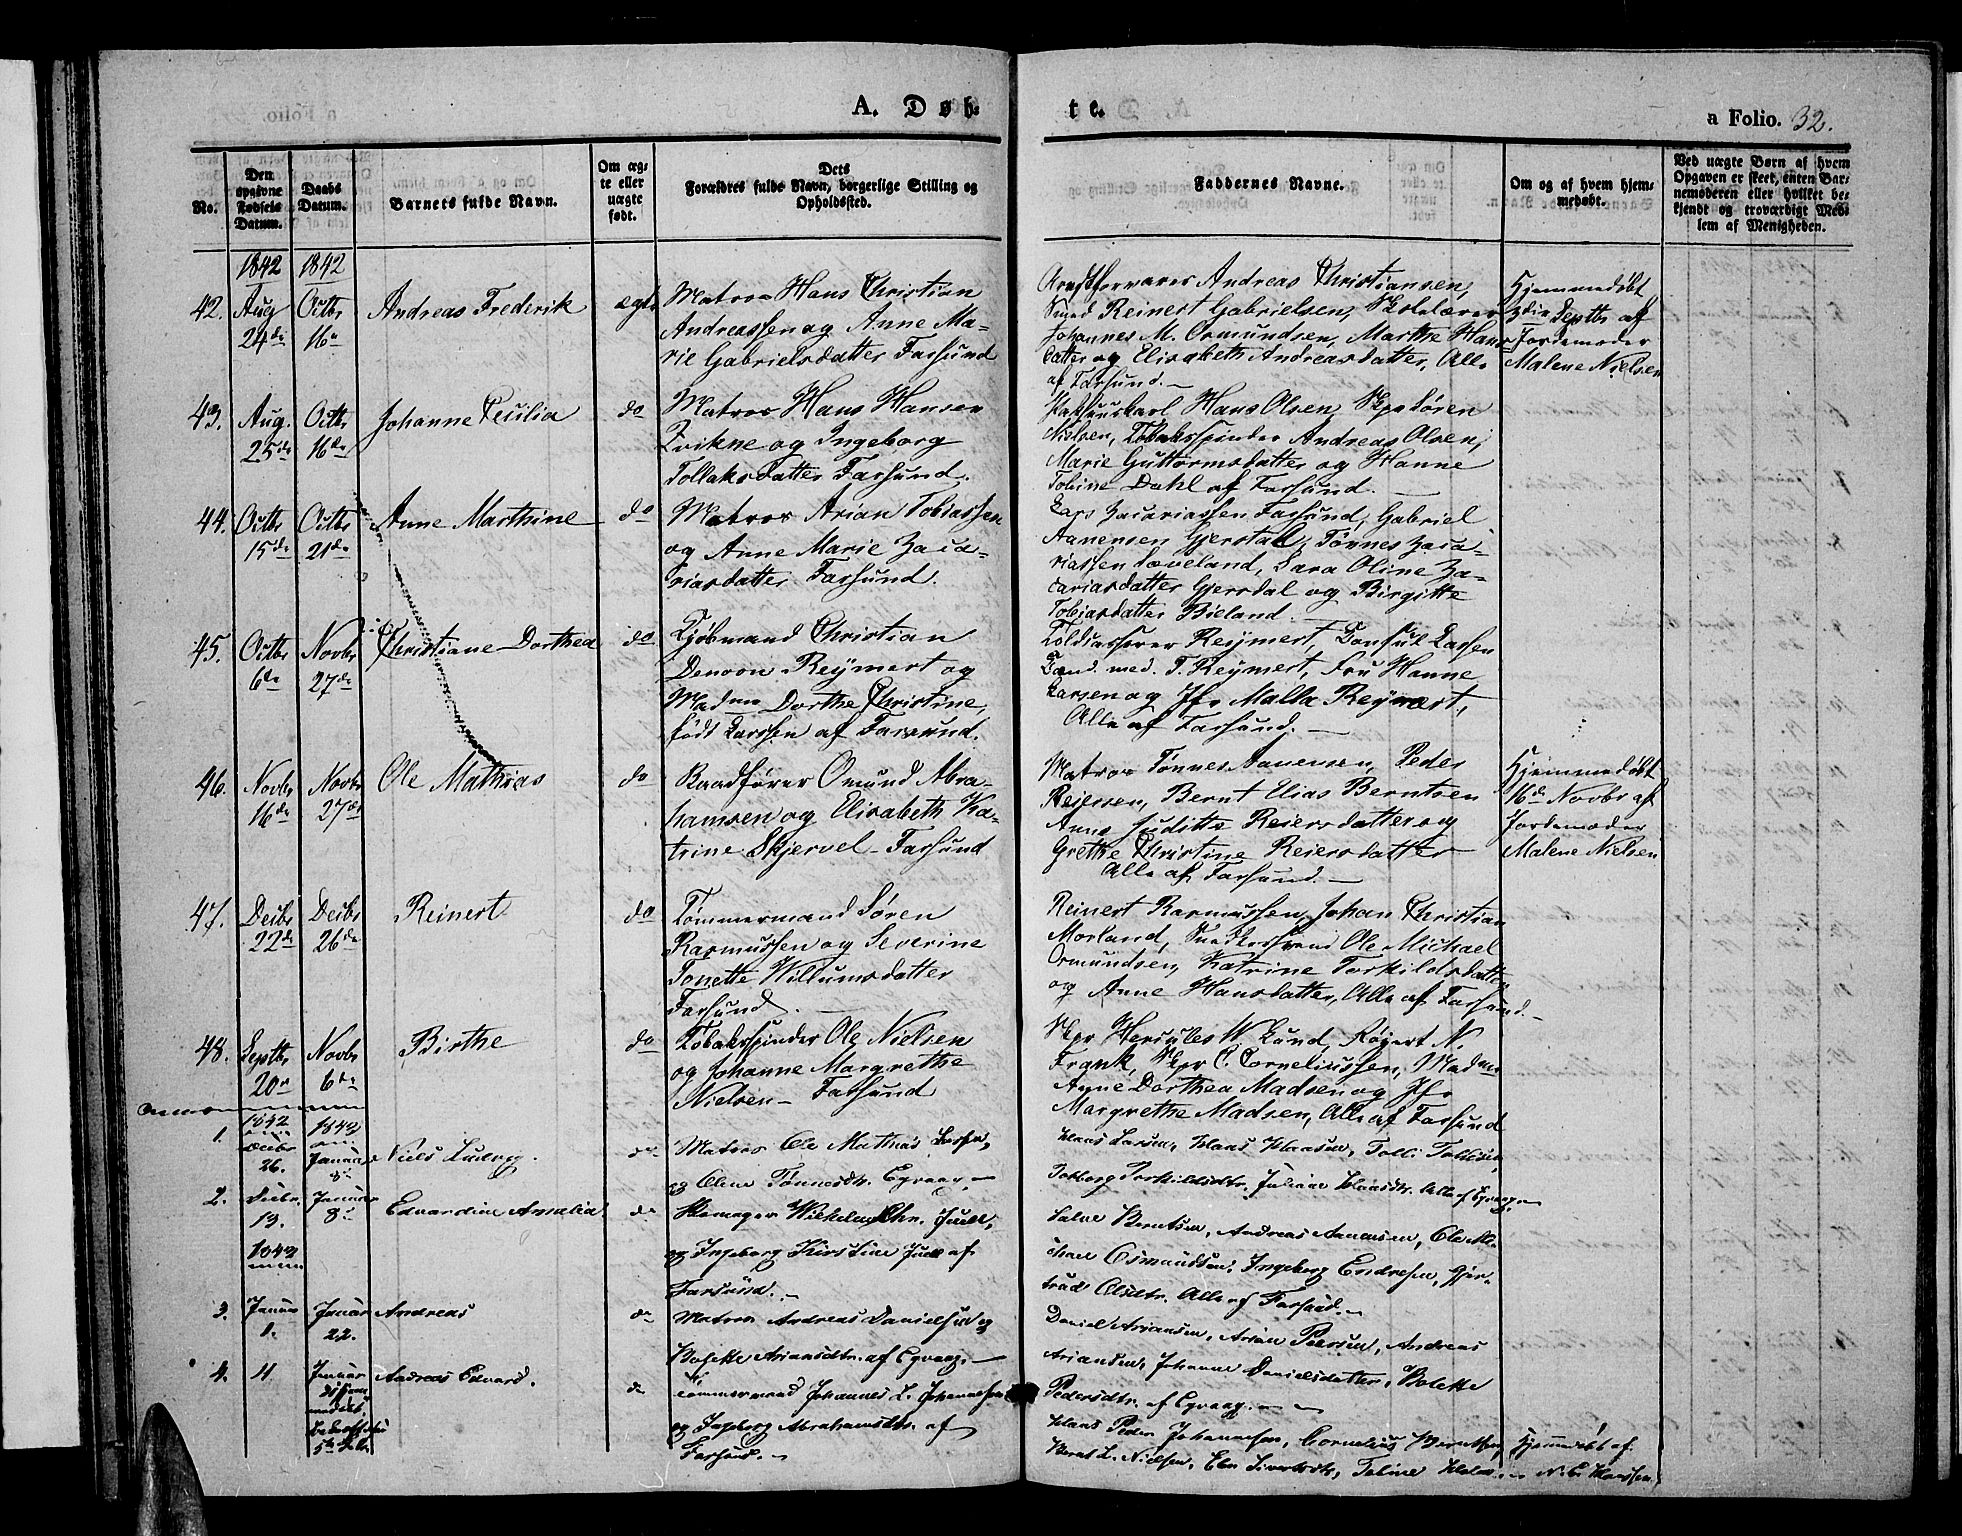 A. Døb-
te.
a Folio. 32.
No.
Den opgivne Fødsels Datum.
Daabs Datum.
Barnets fulde Navn.
Om ægte eller uægte født.
Dets Forældres fulde Navn, borgerlige Stilling og Opholdssted.
Faddernes Navne.
Om og af hvem hjemmedøbt.
Ved uægte Børn af hvem Opgaven er skeet, enten Barnemoderen eller hvilket bekjendt og troværdigt Medlem af Menigheden.
1842 1842
42. Aug 24de Octbr 16de Andreas Frederik ægte
Matros Hans Christian
Andreassen og Anne Ma-
rie Gabrielsdatter Farsund
Arestforvarer Andreas Christiansen,
Smed Reinert Gabrielsen, Skolelærer
Johannes M. Osmundsen, Marthe Hans
datter og Elisabeth Andreasdatter, Alle
af Farsund.
Hjemmedøbt
3die Septbr af
Jordemoder
Malene Nielsen
43. Aug. 25de Octbr 16de Johanne Cecilia do
Matros Hans Hansen
Zvikne og Ingeborg
Tollaksdatter Farsund.
Hans Olsen, Skpr Søren
Nielsen, Tobaksspinder Andreas Olsen,
Marie Guttormsdatter og Hanne
Tobine Dahl af Farsund.
44. Octbr 15de Octbr 21de Anne Marthine do
Matros Arian Tobiassen
og Anne Marie Zaca-
riasdatter Farsund.
Lars Zacariassen Farsund, Gabriel
Aanensen Gjerstal, Tønnes Zaca-
riassen Sæveland, Sara Oline Za-
cariasdatter Gjersdal og Birgitte
Tobiasdatter Bieland.
45. Octbr 6de Novbr 27de Christiane Dorthea do
Kjøbmand Christian
Denoon Reymert og
Madm Dorthe Christine,
født Larssen af Farsund.
Toldkasserer Reymert, Consul Lassen
Cand. med. T. Reymert, Fru Hanne
Larsen og Jfr Malla Reymert,
Alle af Farsund.
46. Novbr 16de Novbr 27de Ole Mathias do
Baadfører Omund Abra-
hamsen og Elisabeth Ka-
trine Skjervel Farsund
Matros Tønnes Aanensen, Peder
Reiersen, Bernt Elias Berntsen
Anne Juditte Reiersdatter og
Grethe Christine Reiersdatter
Alle af Farsund.
Hjemmedøbt
16de Novbr af
Jordemoder
Malene Nielsen
47. Decbr 22de Decbr 26de Reinert do
Tømmermand Søren
Rasmussen og Severine
Tonette Willumsdatter
Farsund.
Reinert Rasmussen, Johan Christian
Morland, Ole Michael
Osmundsen, Katrine Torkildsdatter
og Anne Hansdatter, Alle af Farsund.
48. Septbr 20de Novbr 6te Birthe do
Tobaksspinder Ole Nielsen
og Johanne Margrethe
Nielsen Farsund
Skpr Hercules W. Lund, Røyert N.
Frank, Skpr C. Corneliussen, Madm
Anne Dorthea Madsen og Jfr
Margrethe Madsen, Alle af Farsund
1842 1843
1. Decbr 26. Januar 8de Niels Ludvig. do
Matros Ole Mathias Larsen,
og Olene Tønnesdtr. Egvaag.
Hans Larsen, Hans Hansen, Tolli Tollisen,
Torborg Torkildsdtr. Juliane Hansdtr. Alle af Egvaag.
2. Decbr. 13. Januar 8de Edvardine Amalia do
Skomager Wilhelm Chr. Juell,
og Ingeborg Kirstine Juell af
Farsund.
Salve Berntsen, Andreas Aanensen, Ole Mi-
chael Osmundsen, Ingeborg Endresen, Gjer-
trud Olsdtr. Alle af Farsund.
1843
3. Januar 1. Januar 22. Andreas do
Matros Andreas Danielsen og
Bolette Ariansdtr. af Egvaag.
Daniel Ariansen, Arian Pedersen, Andreas
Ariansen, Johanne Danielsdatter, Bolette
Pedersdtr. af Egvaag.
4. Januar Andreas Edvard. do
Tømmermand Johannes L. Johannesen
og Ingeborg Abrahamsdtr. af
Farsund.
Hans Peder Johannesen, Cornelius Berntsen,
Bernt L. Nielsen, Tobine
Hjemmedøbt af
N. E. Hanssen.